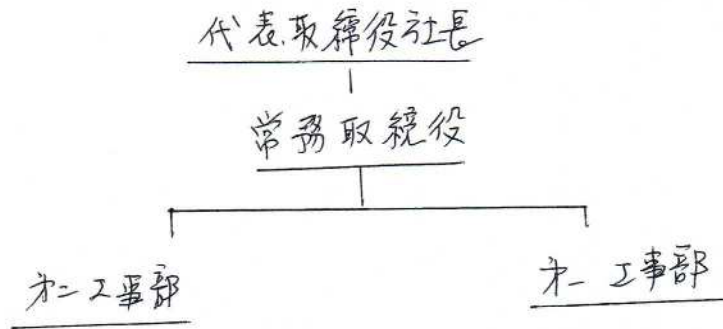 代表取締役社長
常務取締役
才二工事部
才一工事部